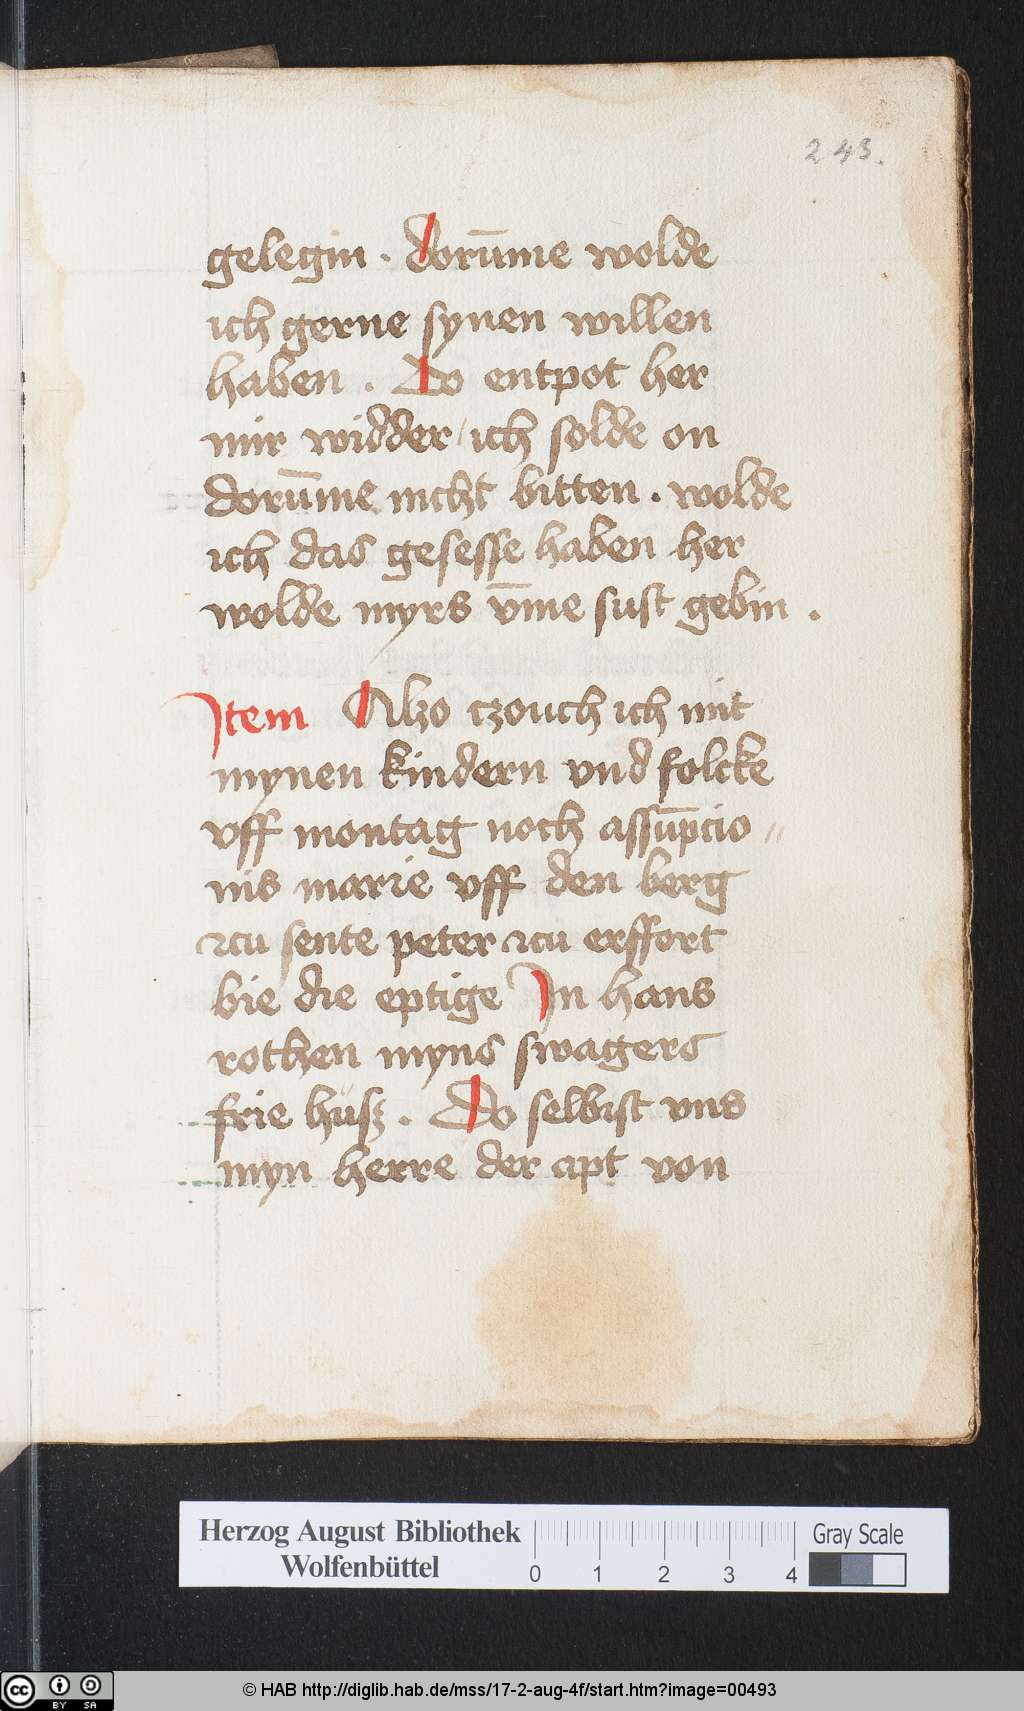 243.
gelegin . dorūme wolde
ich gerne synen willen
haben . Do entpot her
mir widder / ich solde on
dorūme nicht bitten . wolde
ich das gesesse haben her
wolde myrs v̄me sust gebin .
Item Alzo czouch ich mit
mynen kindern vnd folcke
vff montag noch assūpcio //
nis marie vff den berg
zcu sente peter zcu erffort
bie die eptige In hans
rothen myns swagers
frie husz . Do selbist vns
myn herre der apt von
Herzog August Bibliothek
Wolfenbüttel
0 1 2 3 4
Gray Scale
cc BY SA
© HAB http://diglib.hab.de/mss/17-2-aug-4f/start.htm?image=00493